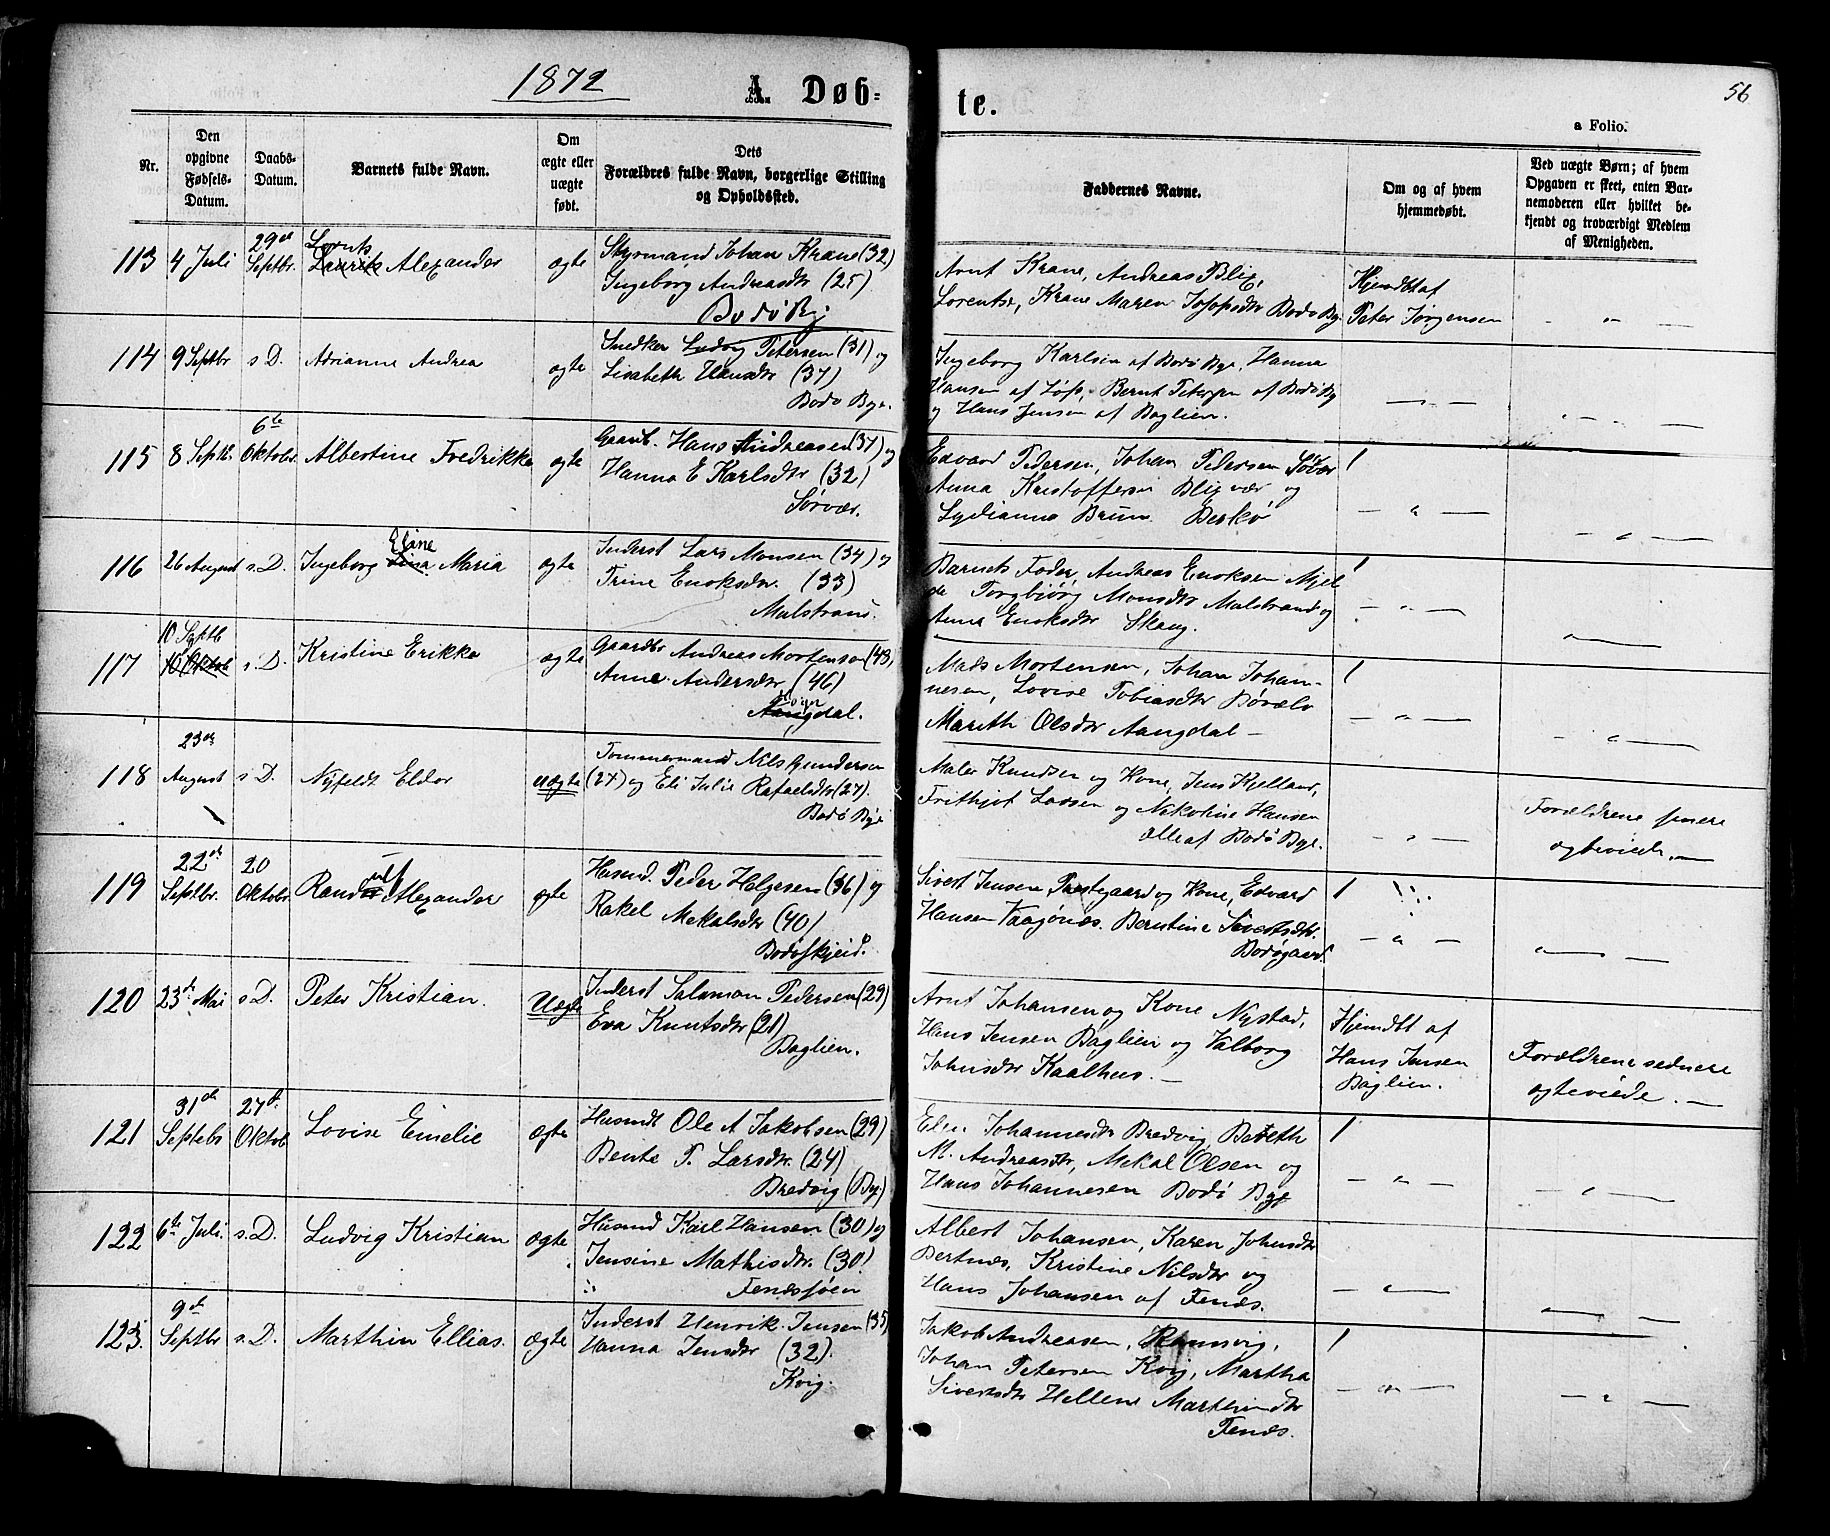 1872
A Døb-
te.
56
a Folio.
Nr.
Den opgivne Fødsels-Datum.
Daabs-Datum.
Barnets fulde Navn.
Om ægte eller uægte født.
Dets Forældres fulde Navn, borgerlige Stilling og Opholdssted.
Faddernes Navne.
Om og af hvem hjemmedøbt.
Ved uægte Børn; af hvem Opgaven er skeet, enten Barnemoderen eller hvilket bekjendt og troværdigt Medlem af Menigheden.
113 4 Juli 29de Septbr. Alexander ægte
Styrmand Johan Krane (32)
Ingeborg Andreasdtr (25)
Bodø By
Arnt Krane, Andreas Blix,
Lorentse, Krane Maren Josefsdtr Bodø Bye
Hjemdbt af
Peter Jørgensen
114 9 Septbr s.D. Adrianne Andrea ægte
Snedker Ludvig Petersen (31) og
Lisabeth Hansdtr (37)
Bodø Bye.
Ingeborg Karlsen af Bodø Bye, Hanna
Hansen af Løp, Bernt Petersen af Bodø By
og Hans Jensen af Baglien.
115 8 Septb. 6te Oktobr. Albertine Fredrikke ægte
Gaardb. Hans Andreasen (37) og
Hanna E Karlsdtr (32)
Sørvær.
Edvard Pedersen, Johan Pedersen Sørvær
Anna Kristoffersen Blixvær og
Lydianna Bruun Berkø
1
116 26 August s.D. Ingeborg Eline Maria ægte
Inderst Lars Monsen (34) og
Trine Enoksdtr. (33)
Malstrand.
Barnets Fader, Andreas Enoksen Mjel
de Torgbjørg Monsdtr Malstrand og
Anna Enoksdtr Skaug.
1
117 10 Septb 10 Oktob s.D. Kristine Erikke ægte
Gaardbr Andreas Mortensen (48,
Anne Andersdtr (46)
Mads Mortensen, Johan Johan-
nesen, Lovise Tobiasdtr Bøvælv
Mareth Olsdtr Aangdal —
1
118 23de August s.D. Nyfeldt Eldor uægte
Tømmermand Nils Gundersen
(27) og Eli Julie Rafaelsdtr (27).
Bodø Bye
Maler Knudsen og Kone, Jens Kjelland,
Frithjof Larsen og Nikoline Hansen
alle af Bodø Bye.
Forældrene senere
ægteviede. —
119 22de Septbr. 20 Oktobr. Randulf Alexander ægte
Husmd. Peder Helgesen (36) og
Rakel Mekalsdtr (40)
Bodøskjeid.
Sivert Jensen Prestegaard og Kone, Edvard
Hansen Vaagønæs. Berntine Sivertsdtr.
Bodøgaard
1
120 23de Mai s.D. Peter Kristian. Uægte
Inderst Salamon Pedersen (29)
Eva Knutsdtr (21)
Baglien.
Arnt Johansen og Kone Nystad,
Hans Jensen Baglien og Valborg
Johnsdtr Kaalhus. —
Hjemdbt af
Hans Jensen
Baglien.
Forældrene sednere
ægteviede. —
121 31de Septebr 27de Oktob Lovise Emelie Ægte
Husmdt Ole A Jakobsen (29)
Bente P. Larsdtr. (24)
Bredvig (By)
Elen Johannesdtr Bredvig, Bereth
M. Andreasdtr, Mekal Olsen og
Hans Johannesen Bodø Bye
1
122 6te Juli. s.D. Ludvig Kristian ægte
Husmd Karl Hansen (30) og
Jensine Mathisdtr. (30)
Fenessjøen
Albert Johansen, Karen Johnsdtr
Bertnæs, Kristine Nilsdtr og
Hans Johansen af Fenæs.
123. 9de Septbr s.D. Marthin Ellias. Ægte
Inderst Henrik Jensen (35)
Hanna Jensdtr (32).
Kvig.
Jakob Andreasen, Ramsvig,
Johan Petersen Kvig, Martha
Sivertsdtr Hellene Marthindtr
Fenæs.
1